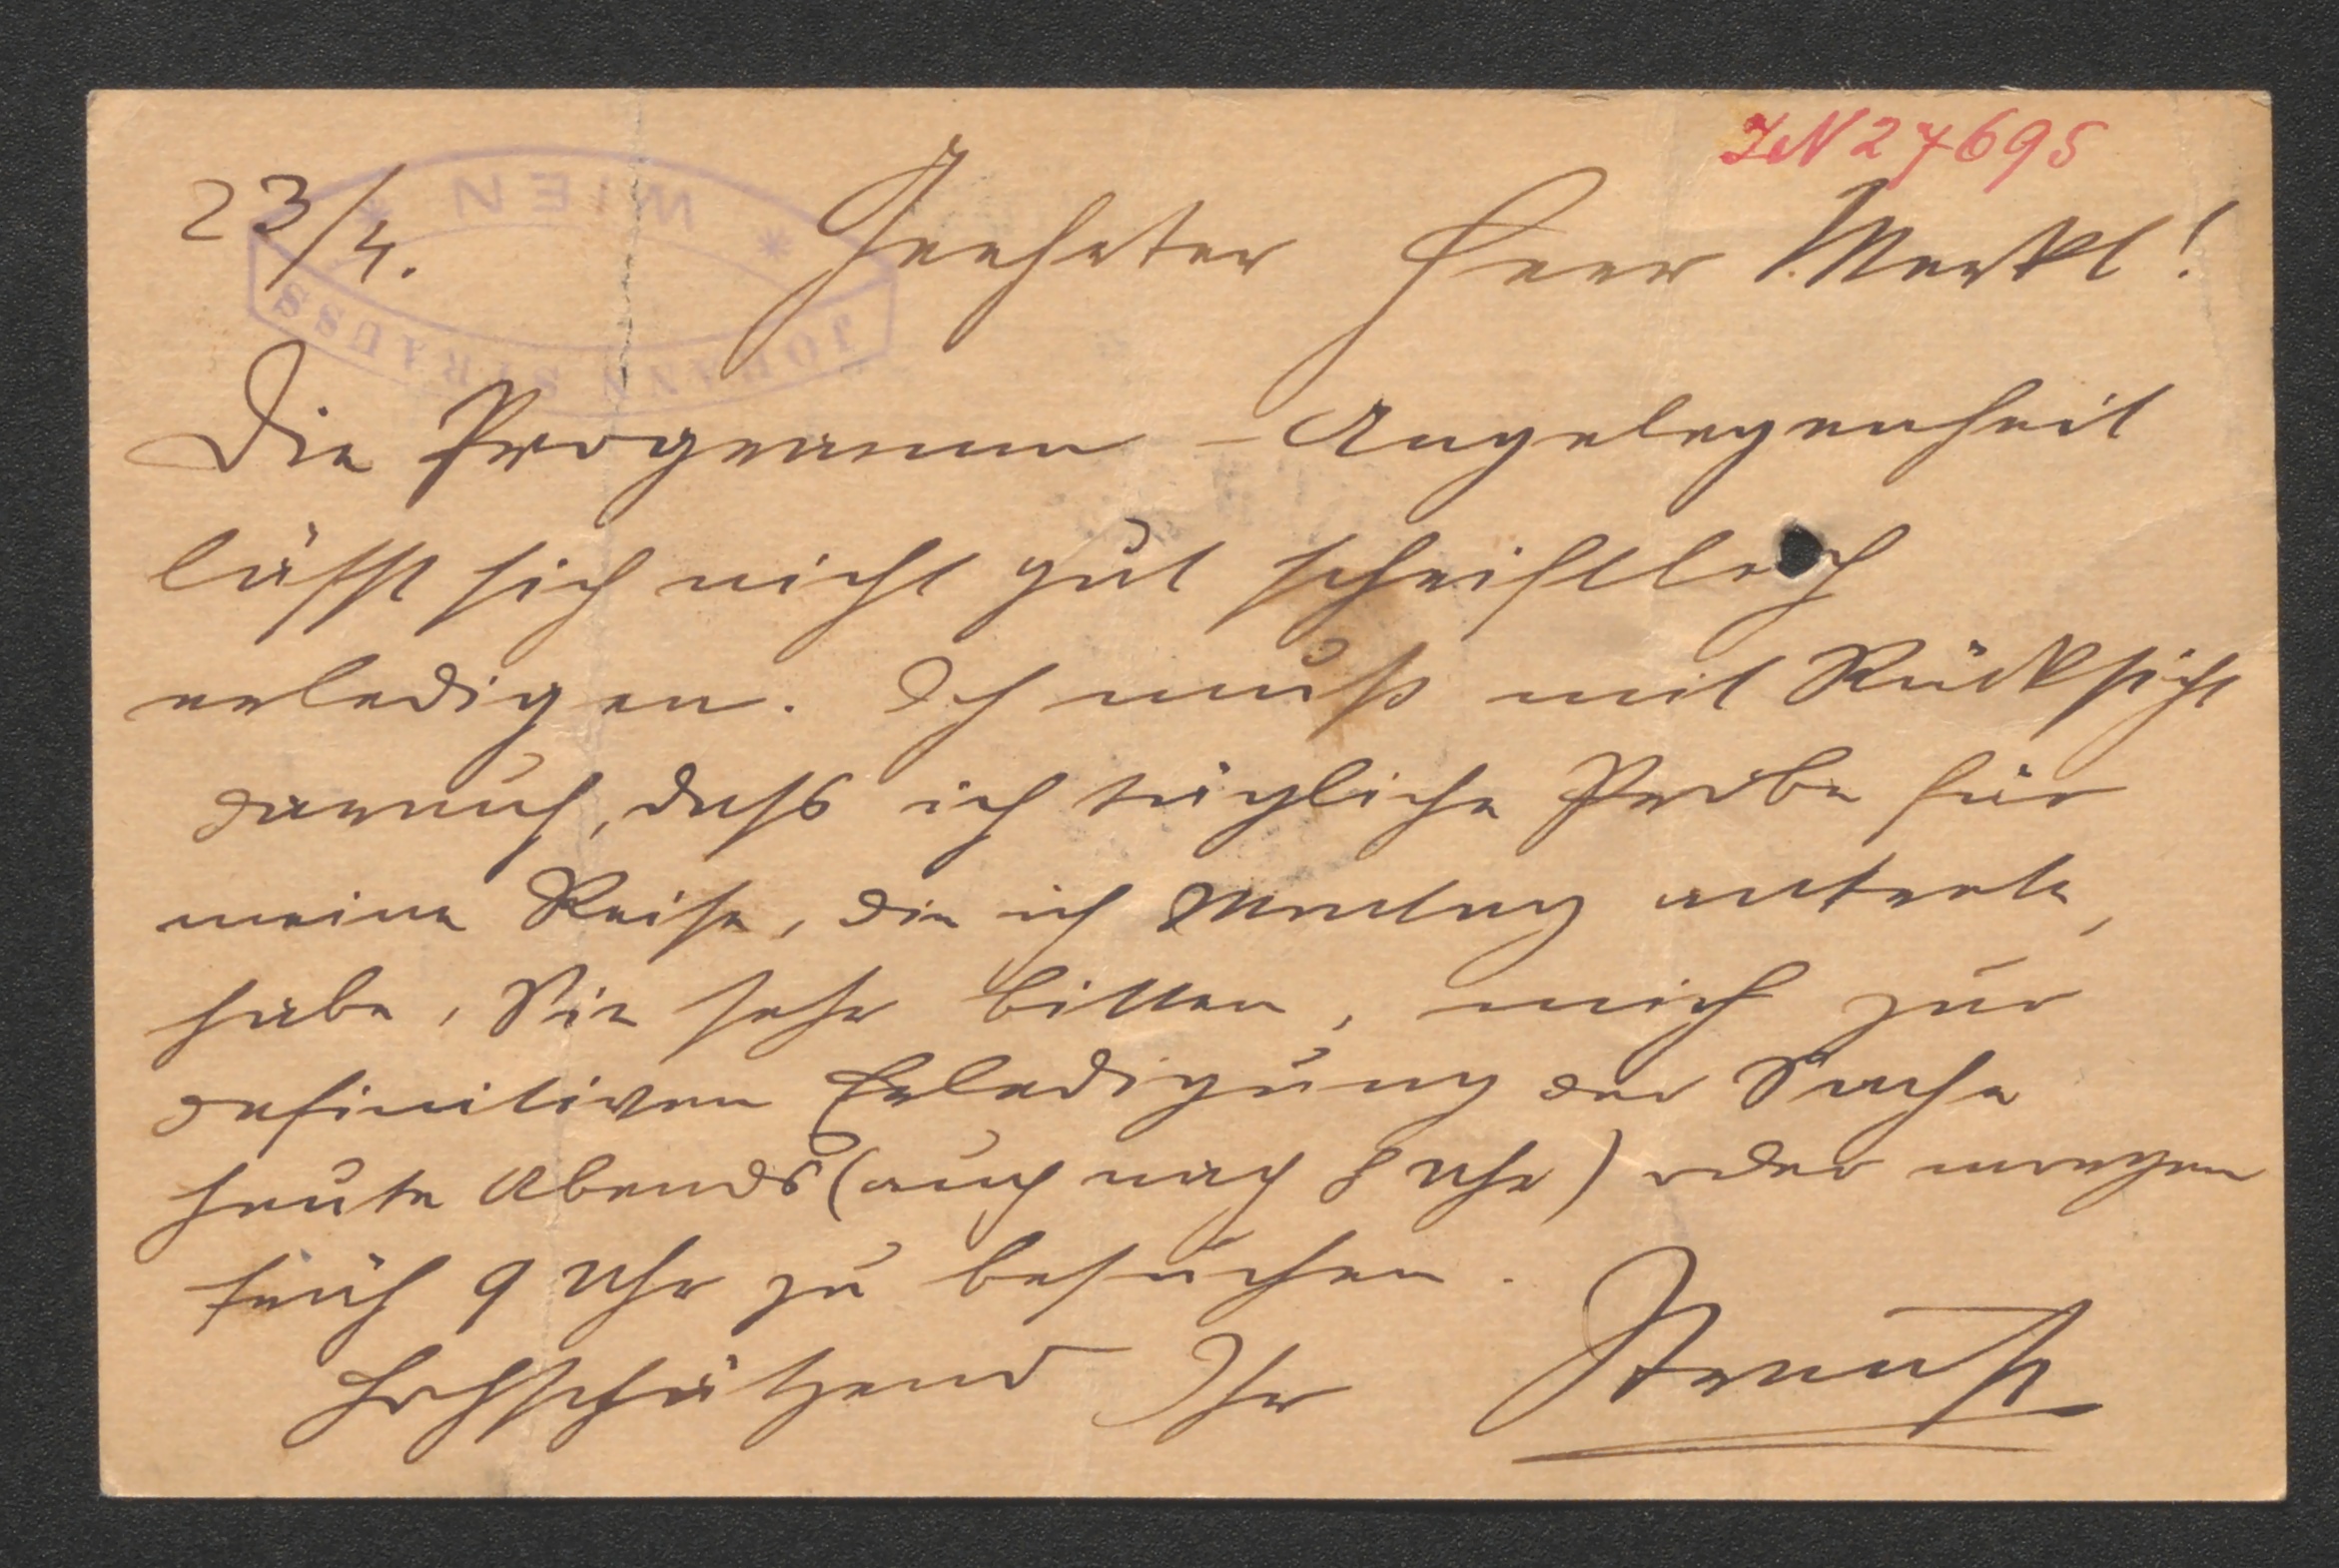 IN 27695
WIEN
JOHANN STRAUSS
23/4. Geehrter Herr Merkl!
Die Programm-Angelegenheit
lässt sich nicht gut schriftlich
erledigen. Ich muß mit Rücksicht
darauf, dass ich tägliche Probe für
meine Reise, die ich Montag antrete,
habe, Sie sehr bitten, mich zur
definitiven Erledigung der Sache
heute Abends (auch nach 8 Uhr) oder morgen
früh 9 Uhr zu besuchen.
Hochschätzend Ihr Strauß